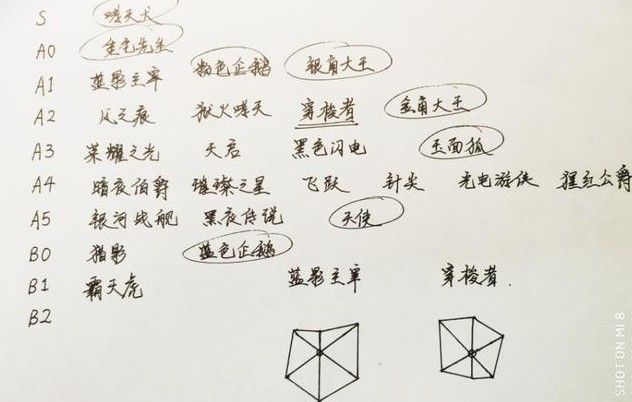 S 哮天犬
A0 金毛先生
A1 蓝影主宰 粉色企鹅 银角大王
A2 风之痕 狱火哮天 穿梭者 金角大王
A3 荣耀之光 天启 黑色闪电 玉面狐
A4 暗夜伯爵 璀璨之星 飞跃 针尖 光电游侠 猩红公爵
A5 银河战舰 黑夜传说 天使
B0 猎影 蓝色企鹅
B1 霸天虎
B2
蓝影主宰 穿梭者.
SHOT ON MI 8